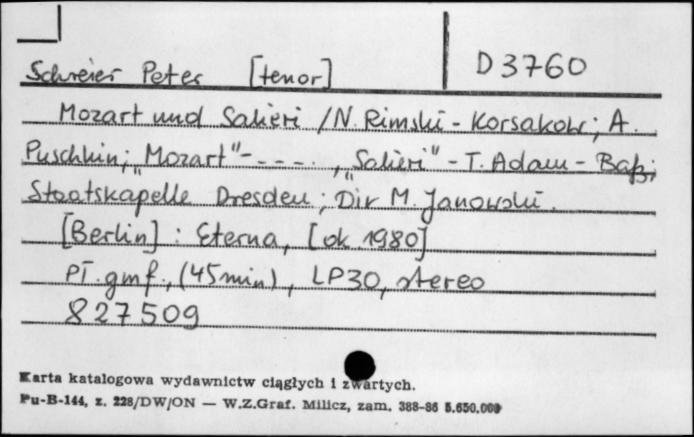 Schreier Peter [tenor] D 3760
Mozart und Salieri /N. Rimski-Korsakow; A.
Puschkin; "Mozart"-----, "Salieri"-T. Adam-Baß;
Staatskapelle Dresden; Dir M. Janowski.
[Berlin] : Eterna, [ok 1980]
Pł. gmf., (45 min), LP30, stereo
827509
Karta katalogowa wydawnictw ciągłych i zwartych.
Pu-B-144, z. 228/DW/ON — W.Z.Graf. Milicz, zam. 388-86 5.650.000